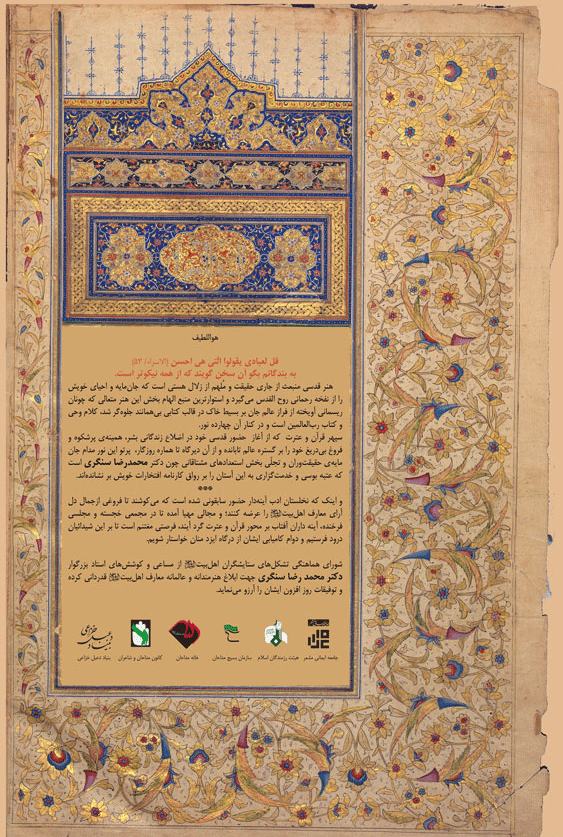 هواللطیف
قل لعبادی یقولوا التی هی احسن (الاسراء/ ۵۳)
به بندگانم بگو آن سخن گویند که از همه نیکوتر است.
هنر قدسی منبعث از جاری حقیقت و ملهم از زلال هستی است که جان‌مایه و احیای خویش
را از نفخه رحمانی روح القدس می‌گیرد و استوارترین منبع الهام بخش این هنر متعالی که چونان
ریسمانی آویخته از فراز عالم جان بر بسیط خاک در قالب کتابی بی‌همانند جلوه‌گر شد، کلام وحی
و کتاب رب‌العالمین است و در کنار آن چهارده نور.
سپهر قرآن و عترت که از آغاز حضور قدسی خود در اضلاع زندگانی بشر، همینه‌ی پرشکوه و
فروغ بی‌دریغ خود را بر گستره عالم تابانده و از آن دیرگاه تا هماره روزگار، پرتو این نور مدام جان
مایه‌ی حقیقت‌وران و تجلّی بخش استعدادهای مشتاقانی چون دکتر محمدرضا سنگری است
که عتبه بوسی و خدمت‌گزاری به این آستان را بر رواق کارنامه افتخارات خویش بر نشانده‌اند.
***
و اینک که نخلستان ادب آینه‌دار حضور سابقونی شده است که می‌کوشند تا فروغی ازجمال دل
آرای معارف اهل‌بیت را عرضه کنند؛ و مجالی مهیا آمده تا در مجمعی خجسته و مجلسی
فرخنده، آینه داران آفتاب بر محور قرآن و عترت گرد آیند، فرصتی مغتنم است تا بر این شیدائیان
درود فرستیم و دوام کامیابی ایشان از درگاه ایزد منان خواستار شویم.
شورای هماهنگی تشکل‌های ستایشگران اهل‌بیت از مساعی و کوشش‌های استاد بزرگوار
دکتر محمد رضا سنگری جهت ابلاغ هنرمندانه و عالمانه معارف اهل‌بیت قدردانی کرده
و توفیقات روز افزون ایشان را آرزو می‌نماید.
جامعه ایمانی مشعر
هیئت رزمندگان اسلام
سازمان بسیج مداحان
خانه مداحان
کانون مداحان و شاعران
بنیاد دعبل خزاعی